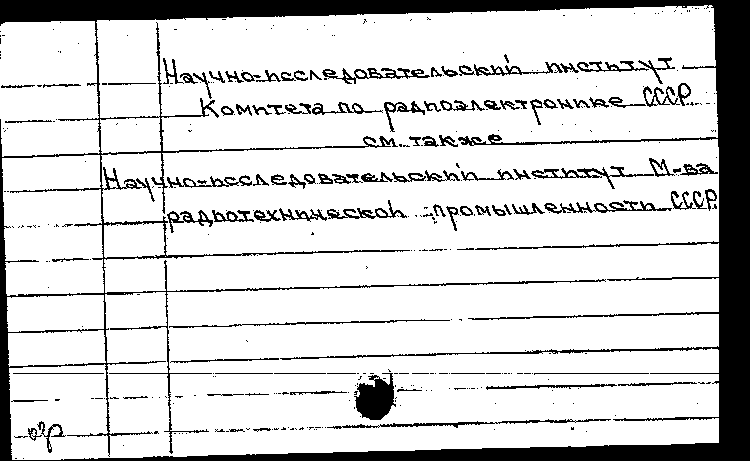 Научно-исследовательский институт
Комитета по радиоэлектронике СССР
см. также
Научно-исследовательский институт М-ва
радиотехнической промышленности СССР